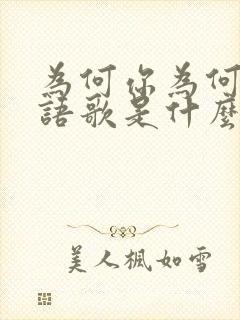 為何你為何
語歌是什麼
美人楓如雪